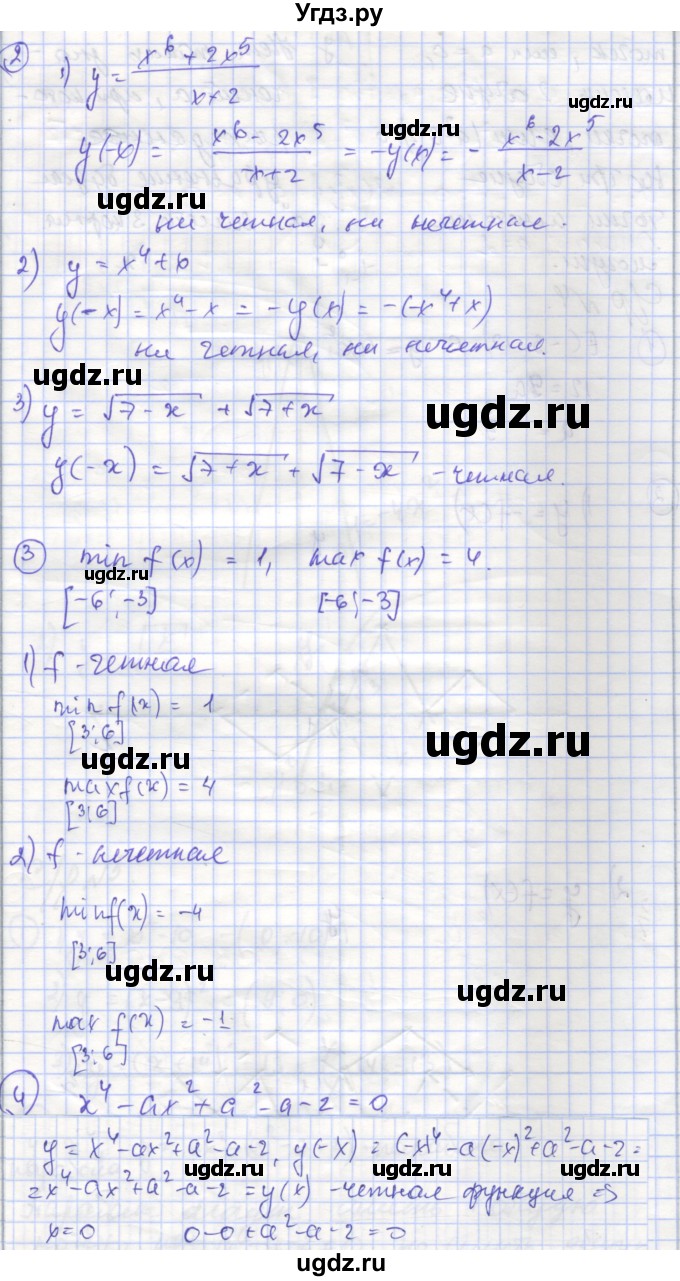 Угдз.ру
2
1) y = (x⁶ + 2x⁵)/(x + 2)
ugdz.ru
y(-x) = (x⁶ - 2x⁵)/(-x + 2) = -y(x) = - (x⁶ - 2x⁵)/(x - 2)
ugdz.ru
ugdz.ru
ни четная, ни нечетная.
2) y = x⁴ + b
y(-x) = x⁴ - x = -y(x) = -(-x⁴ + x)
ни четная, ни нечетная.
ugdz.ru
3) y = √7-x + √7+x
ugdz.ru
y(-x) = √7+x + √7-x - четная.
3 min f(x) = 1, max f(x) = 4.
ugdz.ru
[-6; -3] [-6; -3]
1) f - четная
min f(x) = 1
[3; 6]
ugdz.ru
ugdz.ru
max f(x) = 4
[3; 6]
2) f - нечетная
min f(x) = -4
[3; 6]
ugdz.ru
ugdz.ru
max f(x) = -1
[3; 6]
ugdz.ru
4 x⁴ - ax² + a² - a - 2 = 0
y = x⁴ - ax² + a² - a - 2, y(-x) = (-x)⁴ - a(-x)² + a² - a - 2 =
ugdz.ru
= x⁴ - ax² + a² - a - 2 = y(x) - четная функция ⇒
x = 0 0 - 0 + a² - a - 2 = 0
ugdz.ru